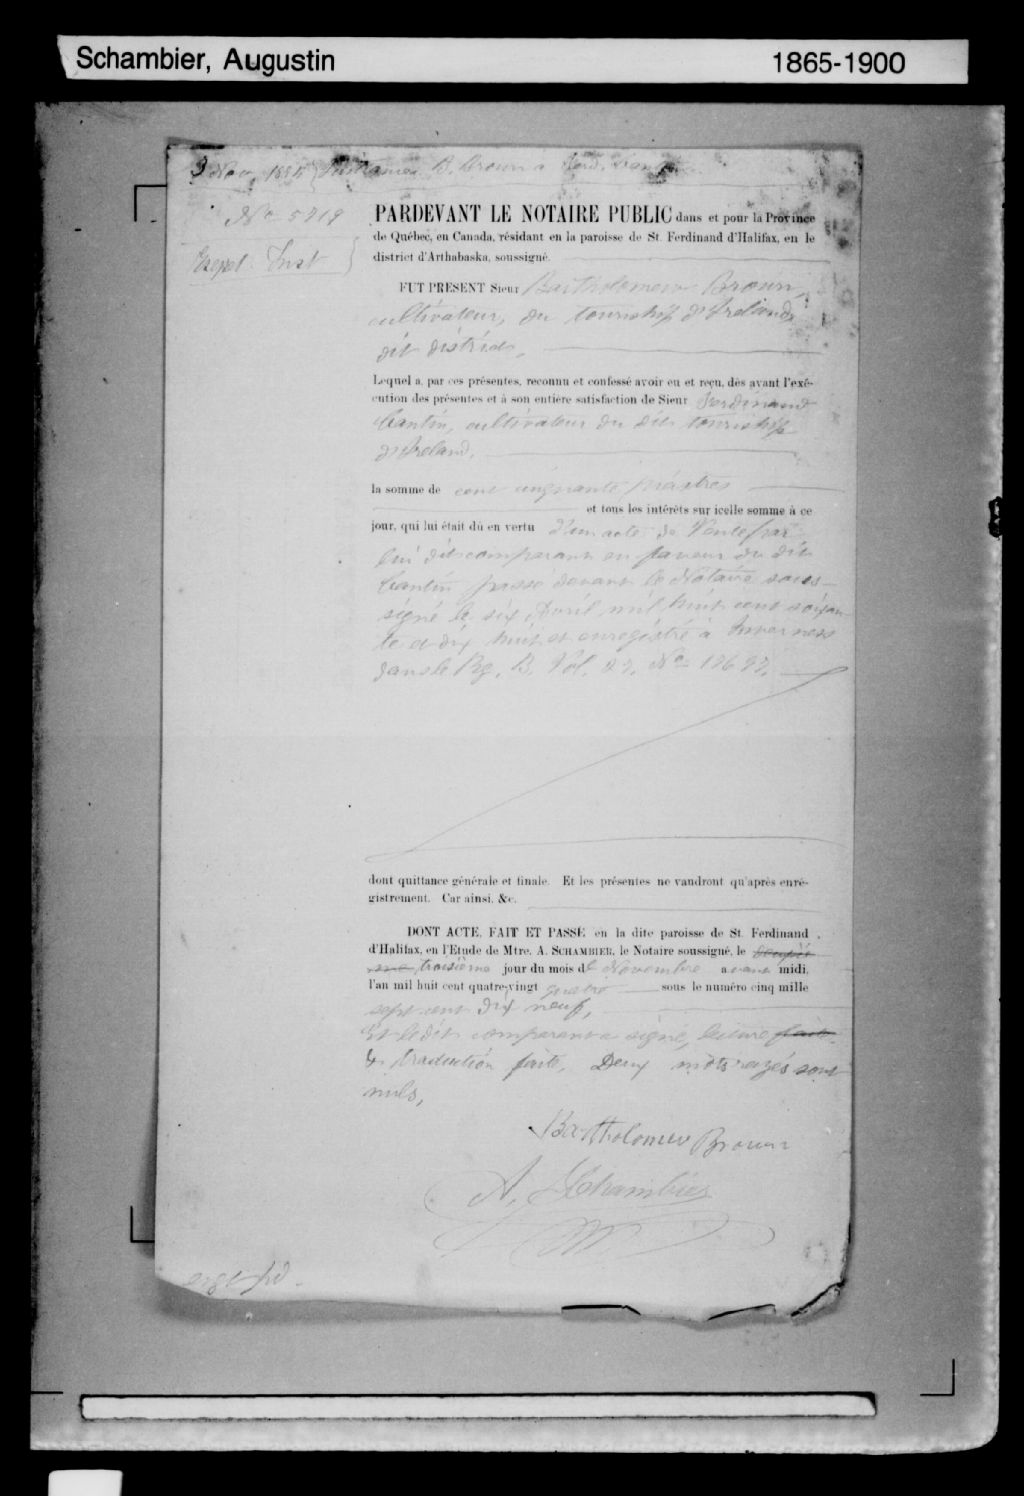 Schambier, Augustin 1865-1900
3 Nov. 1884 Quittance B. Brown à Ferd. Cantin
No 5719
Inst
PARDEVANT LE NOTAIRE PUBLIC dans et pour la Province
de Québec, en Canada, résidant en la paroisse de St. Ferdinand d'Halifax, en le
district d'Arthabaska, soussigné.
FUT PRESENT Sieur Bartholomew Brown,
cultivateur, du township d'Ireland,
dit district,
Lequel a, par ces présentes, reconnu et confessé avoir eu et reçu, dès avant l'exé-
cution des présentes et à son entière satisfaction de Sieur Ferdinand
Cantin, cultivateur du dit township
d'Ireland.
la somme de cent cinquante piastres
et tous les intérêts sur icelle somme à ce
jour, qui lui était dû en vertu d'un acte de Vente par
lui dit comparant en faveur du dit
Cantin passé devant le Notaire sous-
signé le six Avril mil huit cent soixan
te et dix huit et enregistré à Inverness
dans le Rg. B. Vol. 27. No
dont quittance générale et finale. Et les présentes ne vaudront qu'après enré-
gistrement. Car ainsi, &c.
DONT ACTE, FAIT ET PASSÉ en la dite paroisse de St. Ferdinand
d'Halifax, en l'Etude de Mtre. A. SCHAMBIER, le Notaire soussigné, le
troisième jour du mois de Novembre avant midi,
l'an mil huit cent quatre-vingt quatre sous le numéro cinq mille
sept cent dix neuf,
Et le dit comparant a signé, lecture faite
& traduction faite. Deux mots rayés sont
nuls,
Bartholomew Brown
A. Schambier
N.P.